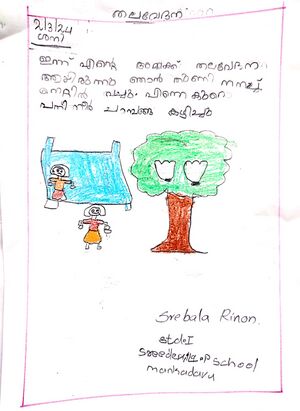 തലവേദന
2/3/24
ശനി
ഇന്ന് എന്റെ അമ്മക്ക് തലവേദന
ആയിരുന്നു ഞാൻ തുണി നനച്ച്
നെറ്റിൽ വച്ചു. പിന്നെ കുറെ
പനി നീർ ചാമ്പങ്ങ കഴിച്ചു
Srebala Rinon.
std I
School
mankadavu